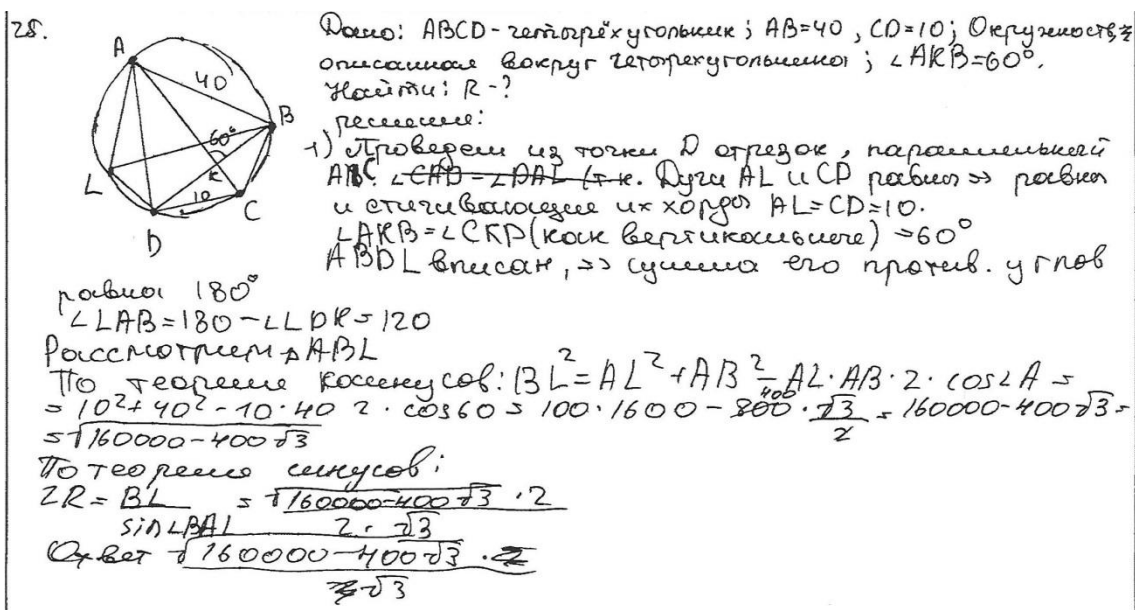 25.
Дано: ABCD - четырёхугольник; AB=40, CD=10; Окружность,
описанная вокруг четырехугольника; ∠AKB=60°.
Найти: R-?
решение:
1) Проведем из точки D отрезок, параллельный
AC. ∠CAD=∠DAL (т.к. Дуги AL и CD равны => равны
и стягивающие их хорды AL=CD=10.
∠AKB=∠CKD (как вертикальные) =60°
ABDL вписан, => сумма его против. углов
равна 180°
∠LAB=180-∠LDK=120
Рассмотрим △ABL
По теореме косинусов: BL²=AL²+AB²-AL·AB·2·cos∠A=
=10²+40²-10·40 2·cos60=100·1600-800 400·√3/2=160000-400√3=
=√160000-400√3
По теореме синусов:
2R=BL/sin∠BAL=√160000-400√3·2/2·√3
Ответ √160000-400√3·2/√3
A
40
B
60°
L
K
10
C
D